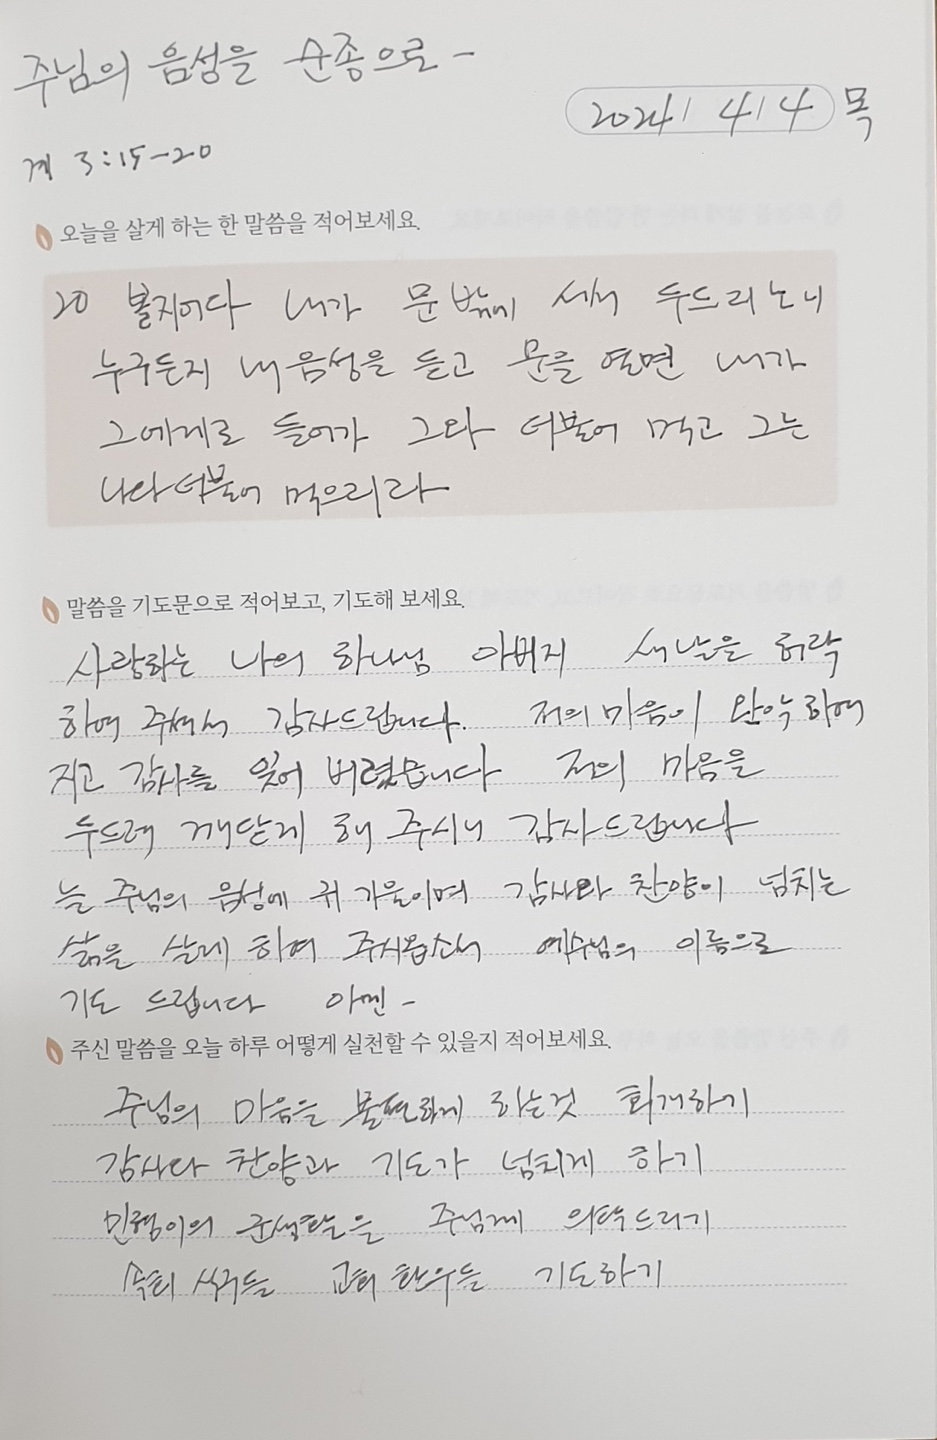 주님의 음성을 순종으로 -
2024 / 4 / 4 목
계 3:15-20
오늘을 살게 하는 한 말씀을 적어보세요.
20 볼지어다 내가 문 밖에 서서 두드리노니
누구든지 내 음성을 듣고 문을 열면 내가
그에게로 들어가 그와 더불어 먹고 그는
나와 더불어 먹으리라
말씀을 기도문으로 적어보고, 기도해 보세요.
사랑하는 나의 하나님 아버지 새날을 허락
하여 주셔서 감사드립니다. 저의 마음이 완악하여
지고 감사를 잊어 버렸습니다 저의 마음을
두드려 깨닫게 해 주시니 감사드립니다
늘 주님의 음성에 귀 기울이며 감사와 찬양이 넘치는
삶을 살게 하여 주시옵소서 예수님의 이름으로
기도 드립니다 아멘 -
주신 말씀을 오늘 하루 어떻게 실천할 수 있을지 적어보세요.
주님의 마음을 불편하게 하는것 회개하기
감사와 찬양과 기도가 넘치게 하기
민령이의 주님께 의탁드리기
속회 식구들 교회 환우들 기도하기